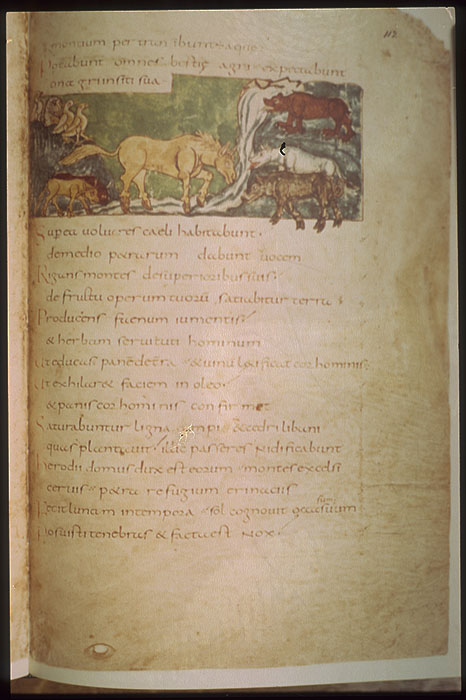 112
montium per transibunt aque
Potabunt omnes bestie agri expectabunt
onagri insiti sua
Supea uolucres caeli habitabunt.
demedio petrarum dabunt uocem
Rigans montes desuperioribus suis
de fructu operum tuorū satiabitur terra
Producens faenum iumentis
& herbam seruituti hominum
Ut educas panē deterra & uinū l&ificat cor hominis
Ut exhilar& faciem in oleo.
& panis cor hominis confirmet
Saturabuntur ligna campi & cedri libani
quas plantauit illic passeres nidificabunt
herodii domus dux est eorum montes excelsi
ceruis petra refugium erinaciis
Fecit lunam intempora sol cognouit occasum suum
Posuisti tenebras & facta est nox.